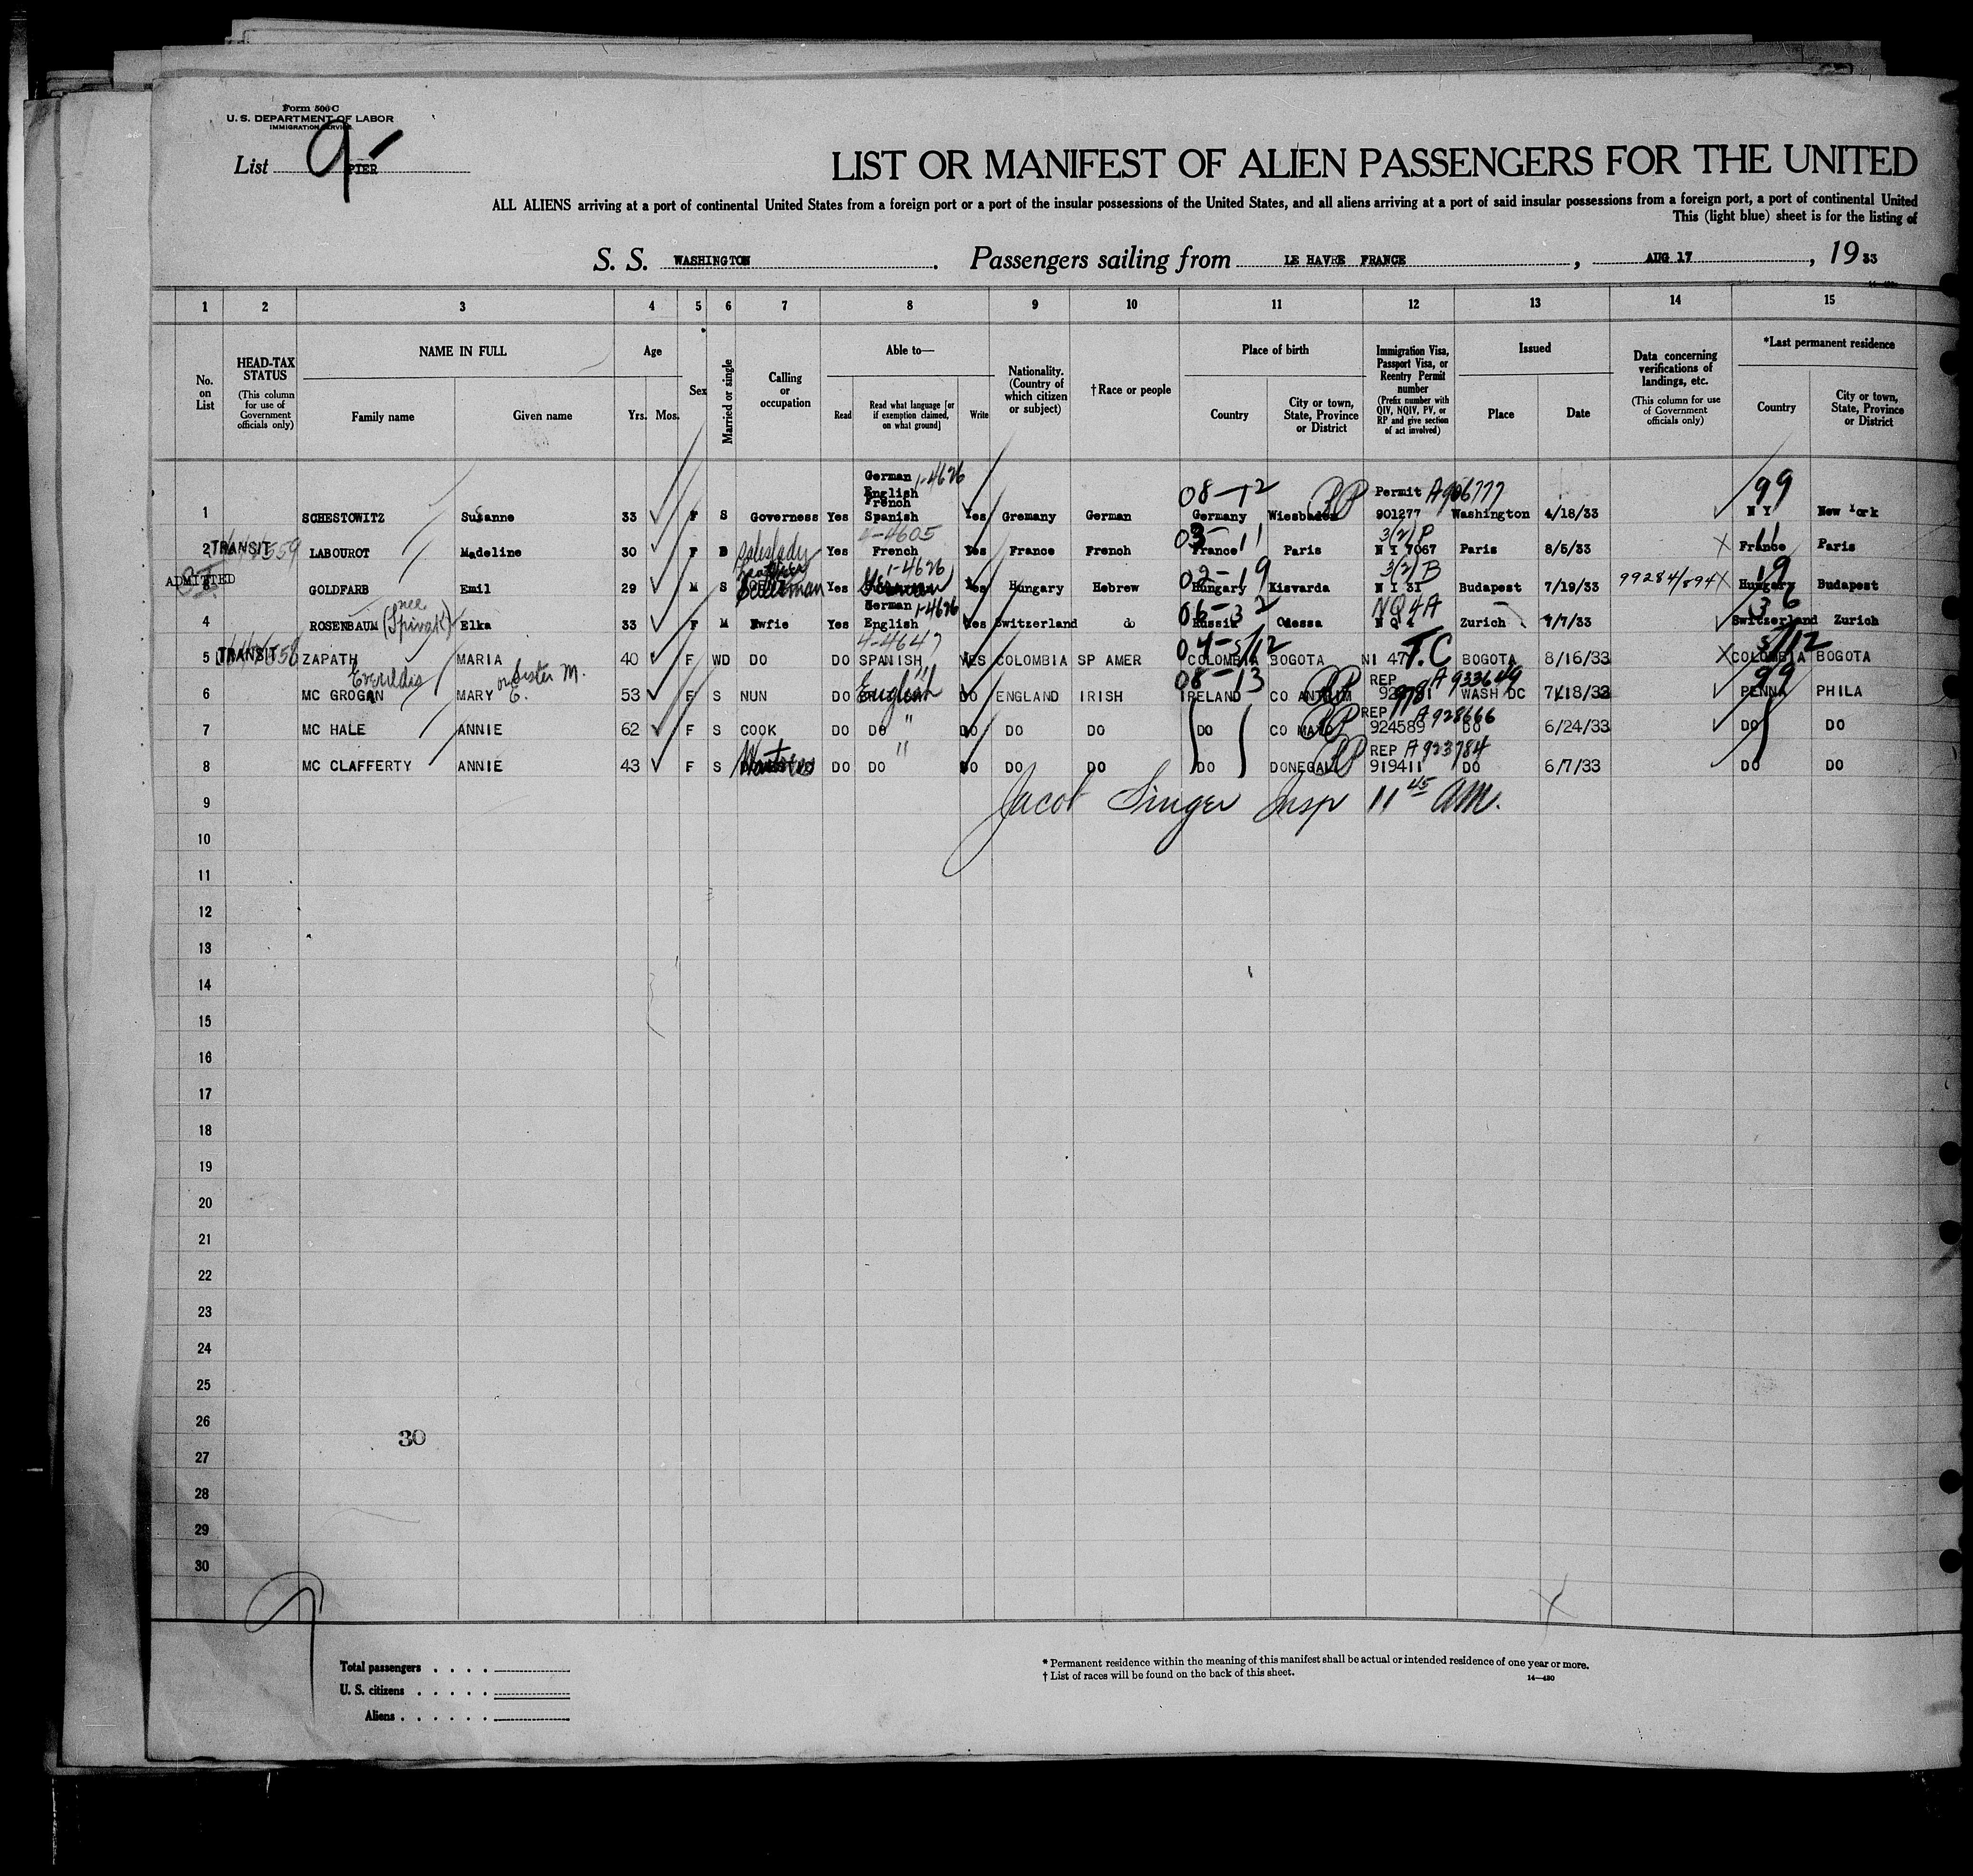 Form 500 C
U. S. DEPARTMENT OF LABOR
IMMIGRATION SERVICE
List 9 PIER
LIST OR MANIFEST OF ALIEN PASSENGERS FOR THE UNITED
ALL ALIENS arriving at a port of continental United States from a foreign port or a port of the insular possessions of the United States, and all aliens arriving at a port of said insular possessions from a foreign port, a port of continental United
This (light blue) sheet is for the listing of
S. S. WASHINGTON . Passengers sailing from LE HAVRE FRANCE , AUG 17 , 19 33
1 2 3 4 5 6 7 8 9 10 11 12 13 14 15
No. on List
HEAD-TAX STATUS
(This column for use of Government officials only)
NAME IN FULL
Family name Given name
Age
Yrs. Mos.
Sex
Married or single
Calling or occupation
Able to—
Read Read what language [or if exemption claimed, on what ground] Write
Nationality. (Country of which citizen or subject)
† Race or people
Place of birth
Country City or town, State, Province or District
Immigration Visa, Passport Visa, or Reentry Permit number
(Prefix number with QIV, NQIV, PV, or RP and give section of act involved)
Issued
Place Date
Data concerning verifications of landings, etc.
(This column for use of Government officials only)
*Last permanent residence
Country City or town, State, Province or District
German 1-4626
English
French 08-12 RP Permit A906777 99
1 SCHESTOWITZ Susanne 33 F S Governess Yes Spanish Yes Gremany German Germany Wiesbaden 901277 Washington 4/18/33 N Y New York
4-4605 03-11 3(2)P 11
2 TRANSIT LABOUROT Madeline 30 F D Saleslady Yes French Yes France French France Paris N I 7067 Paris 8/5/33 France Paris
ADMITTED 1-4626 02-19 3(2)B 19
GOLDFARB Emil 29 M S Salesman Yes German Yes Hungary Hebrew Hungary Kisvarda N I 31 Budapest 7/19/33 99284/894 Hungary Budapest
nee German 1-4626 06-32 NQ 4A 36
4 ROSENBAUM (Spivak) Elka 33 F M Hwfie Yes English Yes Switzerland do Russia Odessa Zurich 7/7/33 Switzerland Zurich
4-4647 04-5/12 T.C 5/12
5 TRANSIT ZAPATH MARIA 40 F WD DO DO SPANISH YES COLOMBIA SP AMER COLOMBIA BOGOTA NI 47 BOGOTA 8/16/33 COLOMBIA BOGOTA
Everildis or Sister M. E. 08-13 RP REP A933649 99
6 MC GROGAN MARY 53 F S NUN DO English DO ENGLAND IRISH IRELAND CO ANTRIM WASH DC 7/18/33 PENNA PHILA
RP REP A928666
7 MC HALE ANNIE 62 F S COOK DO DO " DO DO DO DO CO MAYO 924589 DO 6/24/33 DO DO
" RP REP A923784
8 MC CLAFFERTY ANNIE 43 F S Waitress DO DO DO DO DO DO DONEGAL 919411 DO 6/7/33 DO DO
Jacob Singer Insp 11 45 AM.
9
10
11
12
13
14
15
16
17
18
19
20
21
22
23
24
25
26
30
27
28
29
30
9
Total passengers . . . .
U. S. citizens . . . . .
Aliens . . . . . .
* Permanent residence within the meaning of this manifest shall be actual or intended residence of one year or more.
† List of races will be found on the back of this sheet.
14—430